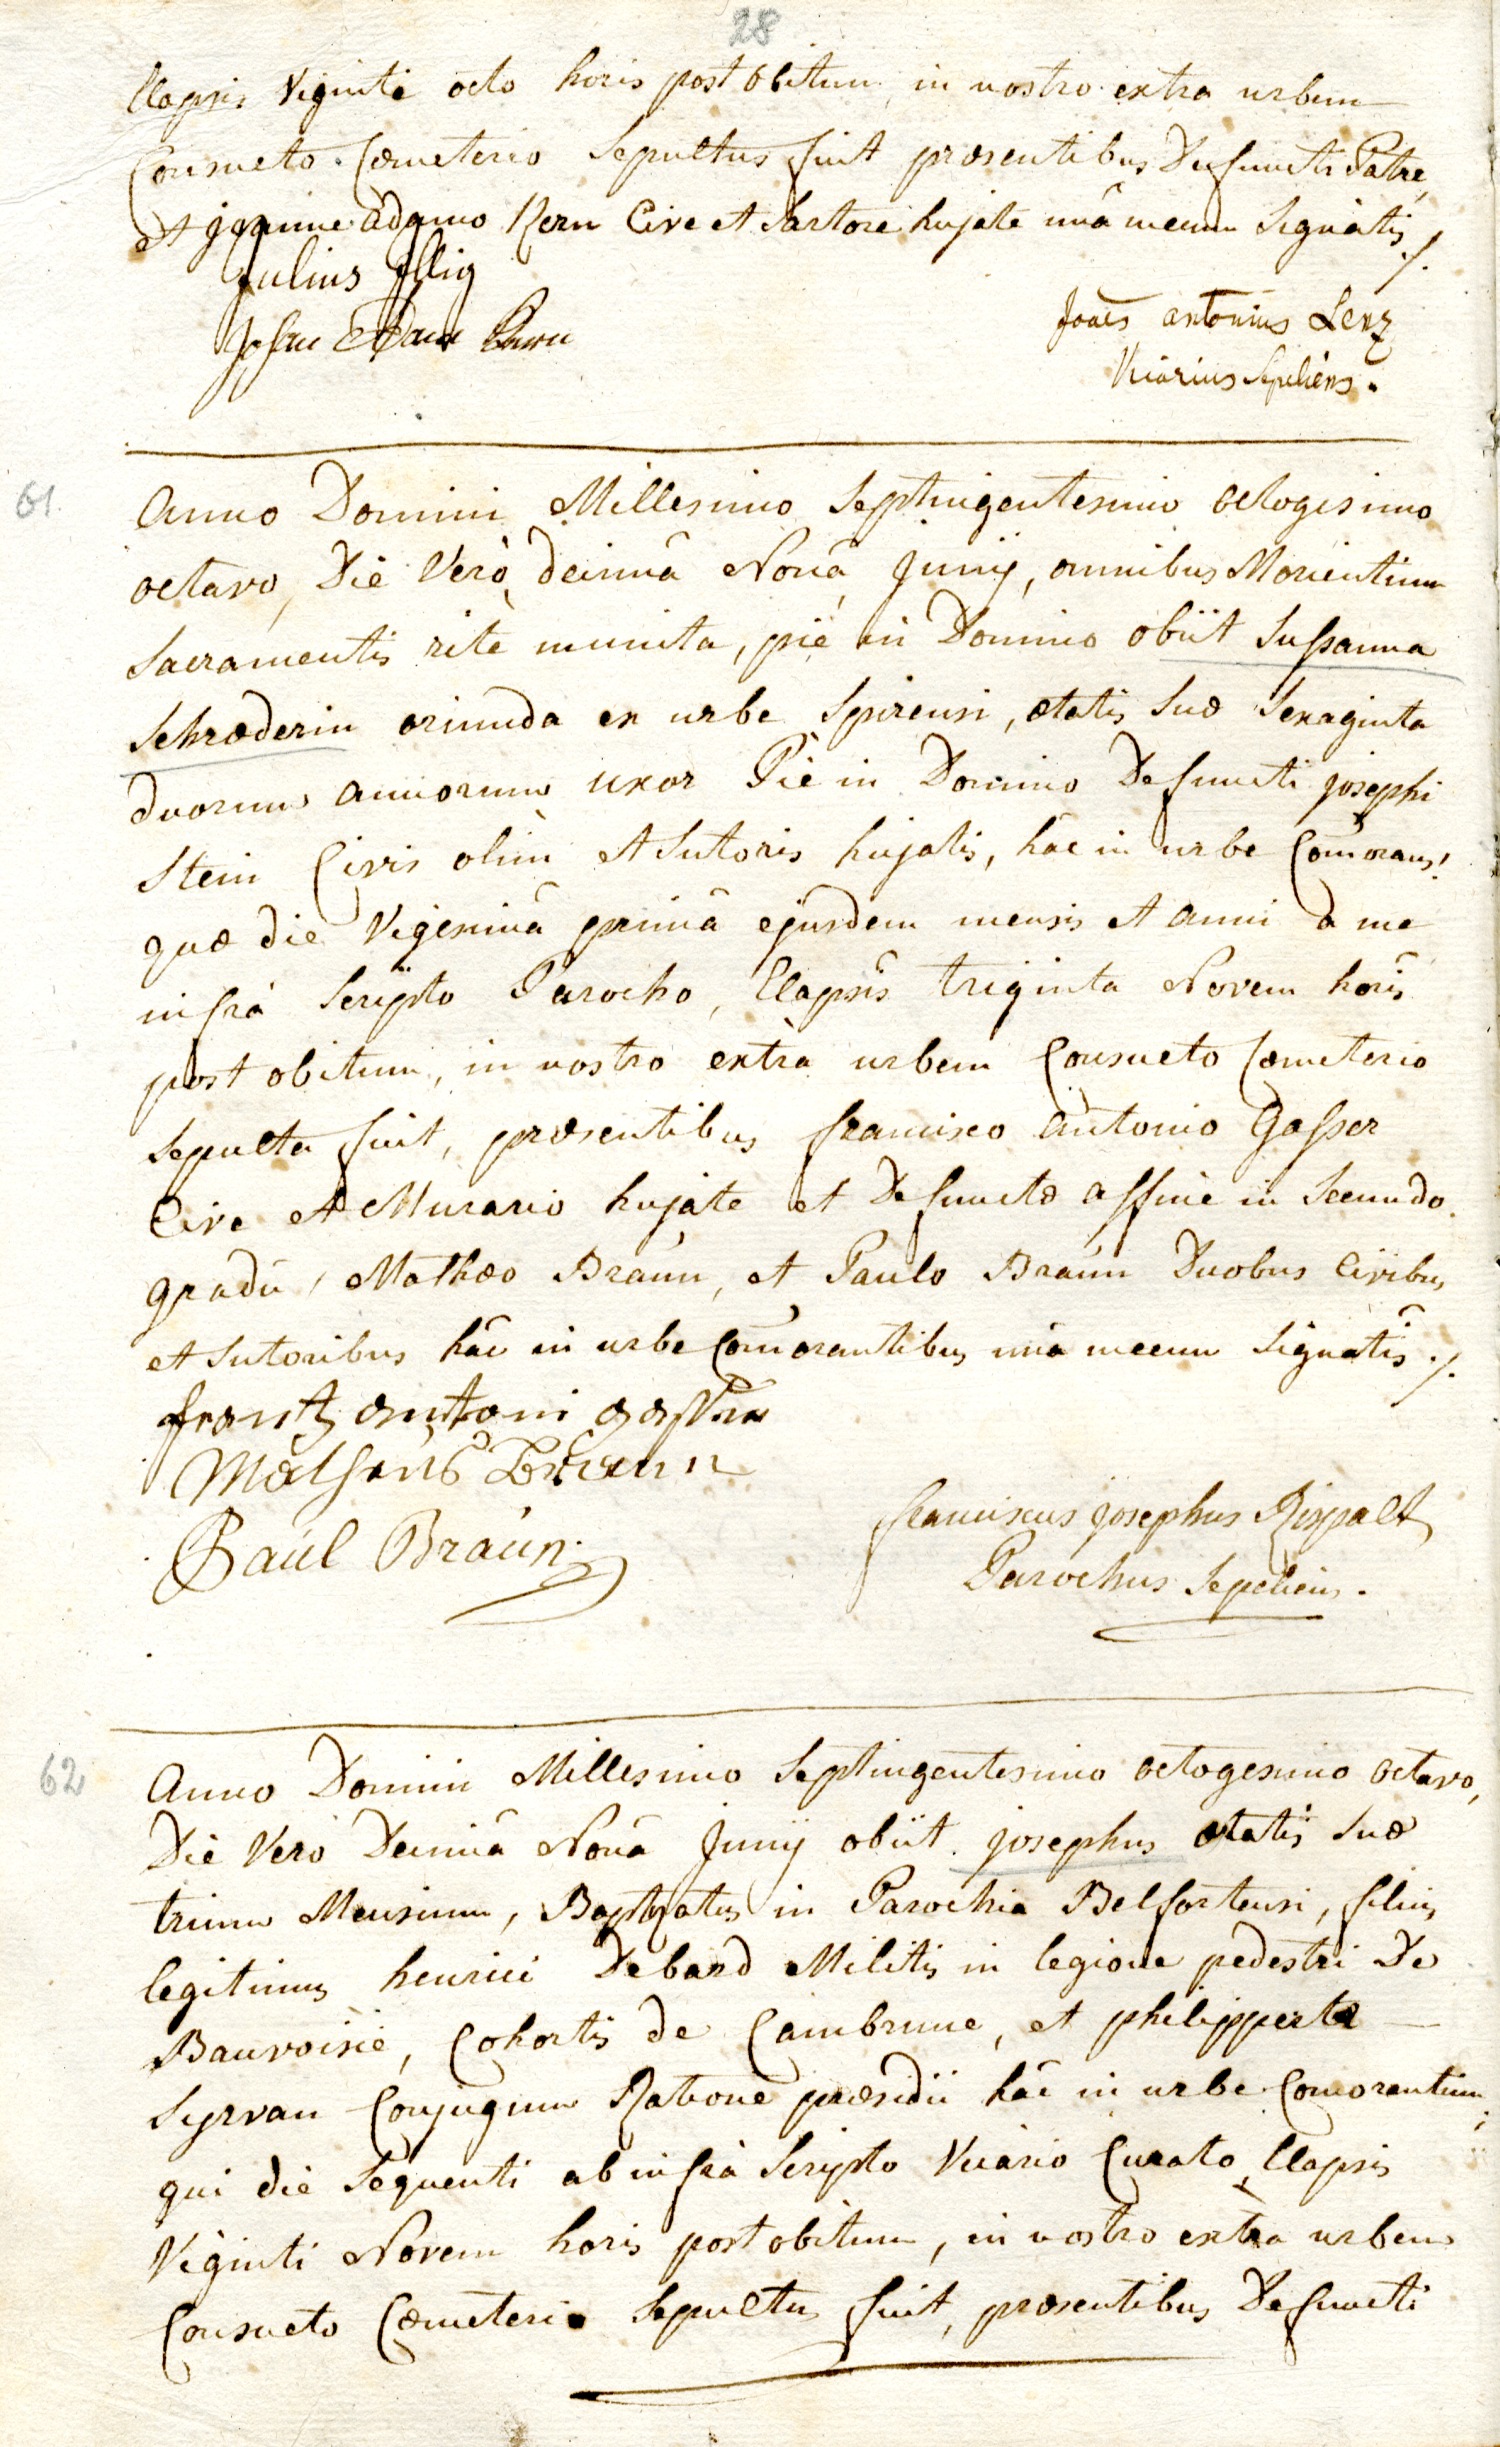 28
Elapsis Viginti octo horis post obitum, in nostro extra urbem
Consueto Cœmeterio Sepultus fuit præsentibus Defuncti Patre,
et joanne adamo Kern Cive et Sartore hujate unà mecum Signatis ./.
Julius Illig
Johan Adam Kern
Joães antonius Lenz
Vicarius Sepeliens.
61.
Anno Domini Millesimo Septingentesimo octogesimo
octavo, Die Verò decimâ Nonâ Junij, omnibus Morientium
Sacramentis ritè munita, piè in Domino obiit Sussanna
Schræderin oriunda ex urbe Spirensi, ætatis Suæ Sexaginta
duorum annorum uxor Piè in Domino Defuncti josephi
Stein Civis olim et Sutoris hujatis, hâc in urbe Com̄orans!
quæ die Vigesimâ primâ ejusdem mensis et anni a me
infrà Scripto Parocho, Elapsis triginta Novem horis
post obitum, in nostro extrà urbem Consueto Cœmeterio
Sepulta fuit, præsentibus francisco antonio Gasser
Cive et Murario hujate et Defunctæ affine in Secundo
gradu, Mathæo Braun, et Paulo Braun Duobus Civibus
et Sutoribus hâc in urbe Com̄orantibus unà mecum Signatis ./.
frantz antoni gasser
Matheus Braun
Paul Braun.
franciscus josephus Rispalt
Parochus Sepeliens.
62
Anno Domini Millesimo Septingentesimo octogesimo octavo,
Die Verò Decimâ Nonâ Junij obiit josephus ætatis Suæ
trium Mensium, Baptizatus in Parochia Belfortensi, filius
legitimus henrici Deband Militis in legione pedestri De
Bauvoisie, Cohortis de Cambrune, et philippertæ
Syrvan Conjugum Ratione præsidii hâc in urbe Comorantium,
qui die Sequenti ab infrà Scripto Vicario Curato, Elapsis
Viginti Novem horis post obitum, in nostro extra urbem
Consueto Cœmeterio Sepultus fuit, præsentibus Defuncti